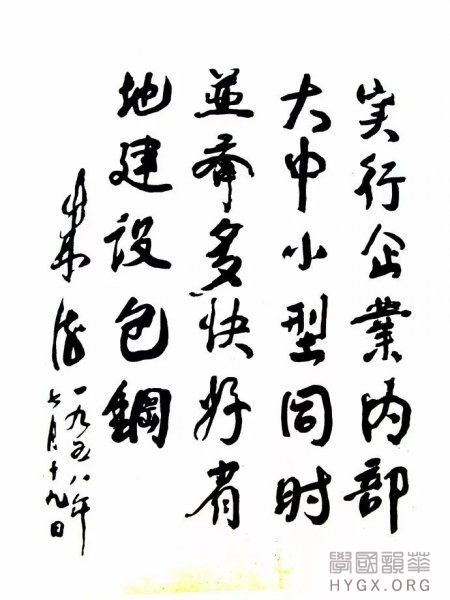 实行企業内部
大中小型同时
並举多快好省
地建设包鋼
朱德
一九五八年
七月十九日
華韻國學
HYGX.ORG